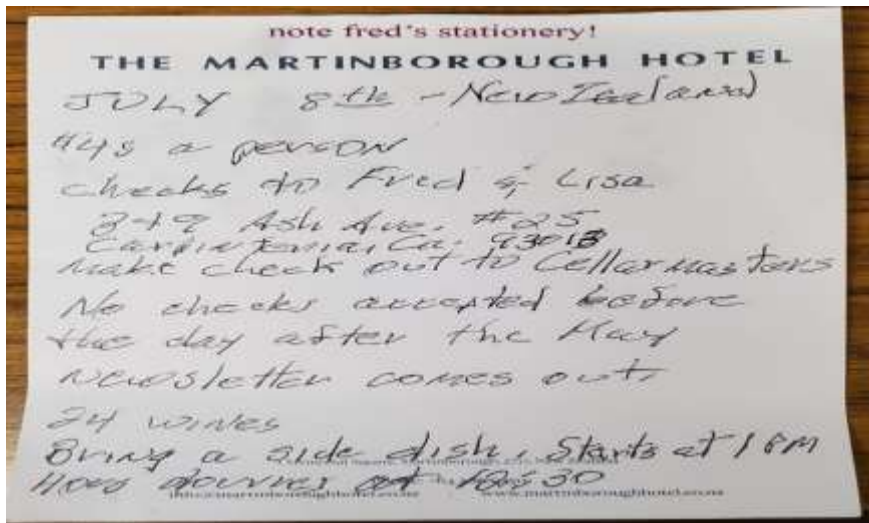 note fred's stationery!
THE MARTINBOROUGH HOTEL
JULY 8th - New Zealand
a person
checks to Fred & Lisa
Ash Ave. #25
Carpinteria, Ca. 93013
make check out to Cellarmasters
No checks accepted before
the day after the May
Newsletter comes out.
24 wines
Bring a side dish. Starts at 1 PM
Hors douvres at 12:30
www.martinboroughhotel.co.nz